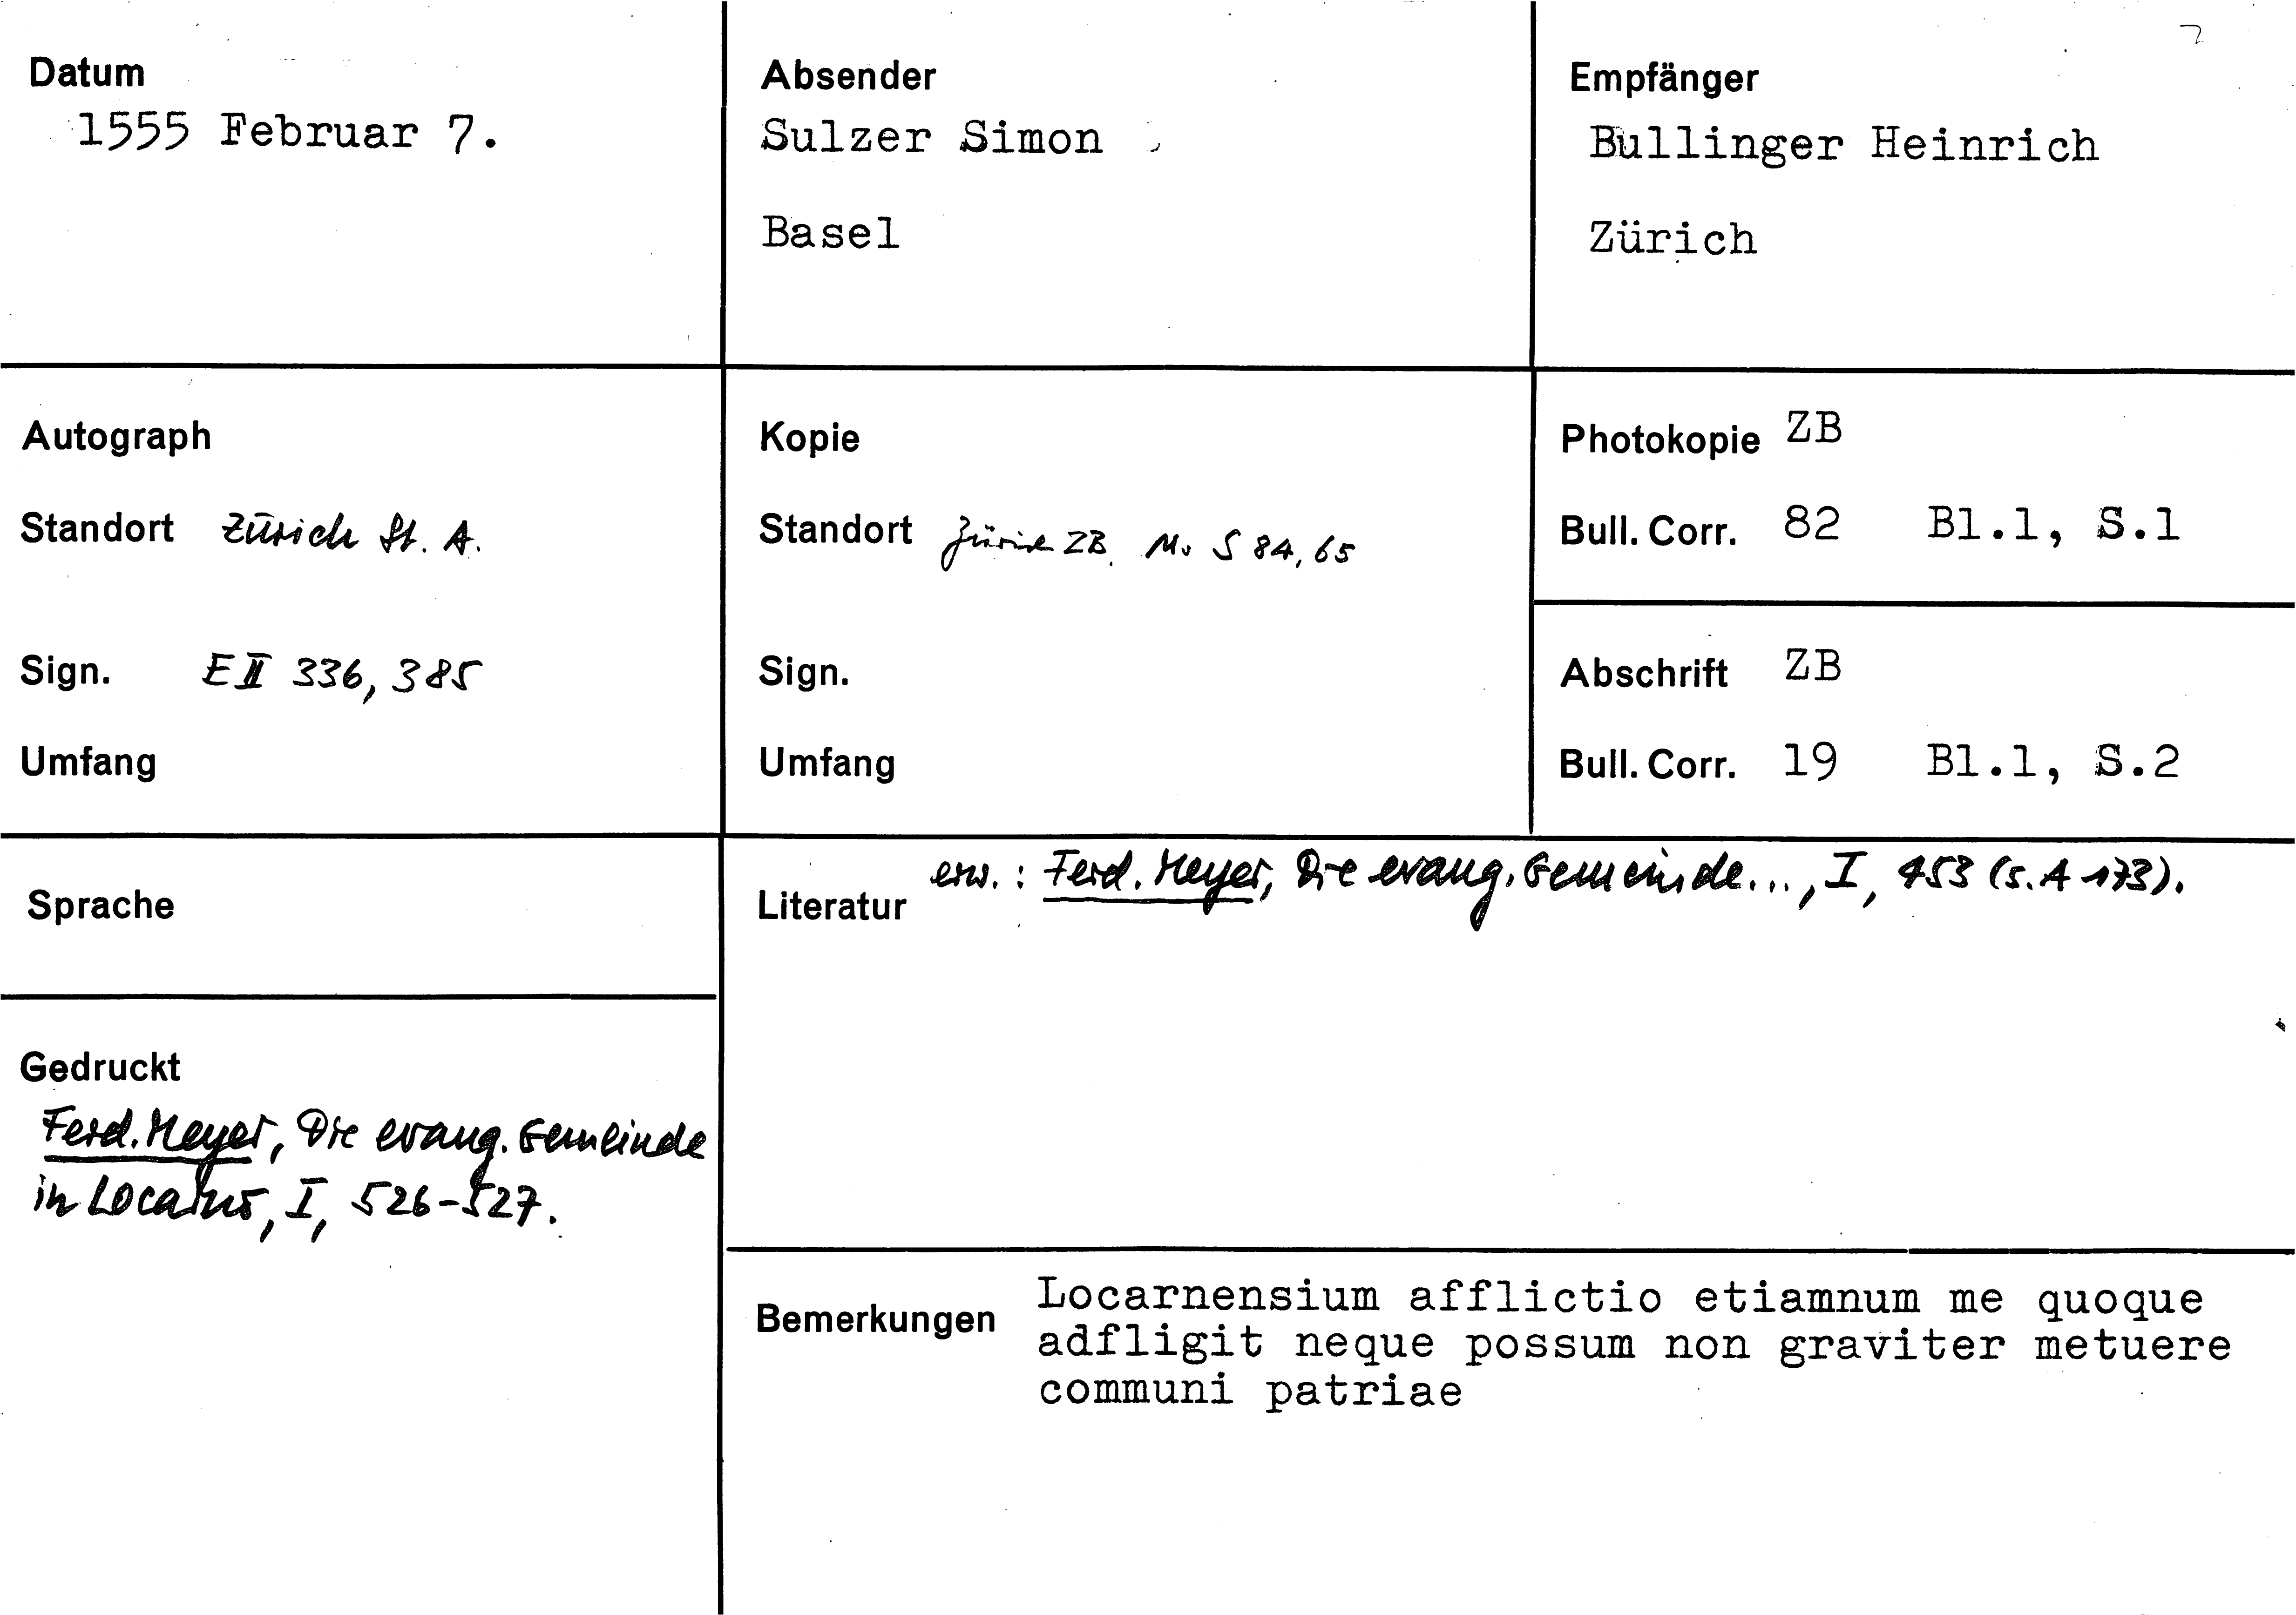 Datum
1555 Februar 7.
Absender
Sulzer Simon
Basel
Empfänger
Bullinger Heinrich
Zürich
Autograph
Standort Zürich St. A.
Sign. E II 336, 385
Umfang
Kopie
Standort Zürich ZB. Ms S 84, 65
Sign.
Umfang
Photokopie ZB
Bull. Corr. 82 Bl.1, S.1
Abschrift ZB
Bull. Corr. 19 Bl.1, S.2
Sprache
Gedruckt
Ferd. Meyer, Die evang. Gemeinde
in Locarno, I, 526-527.
Literatur erw.: Ferd. Meyer, Die evang. Gemeinde..., I, 453 (s. A 173).
Bemerkungen
Locarnensium afflictio etiamnum me quoque
adfligit neque possum non graviter metuere
communi patriae